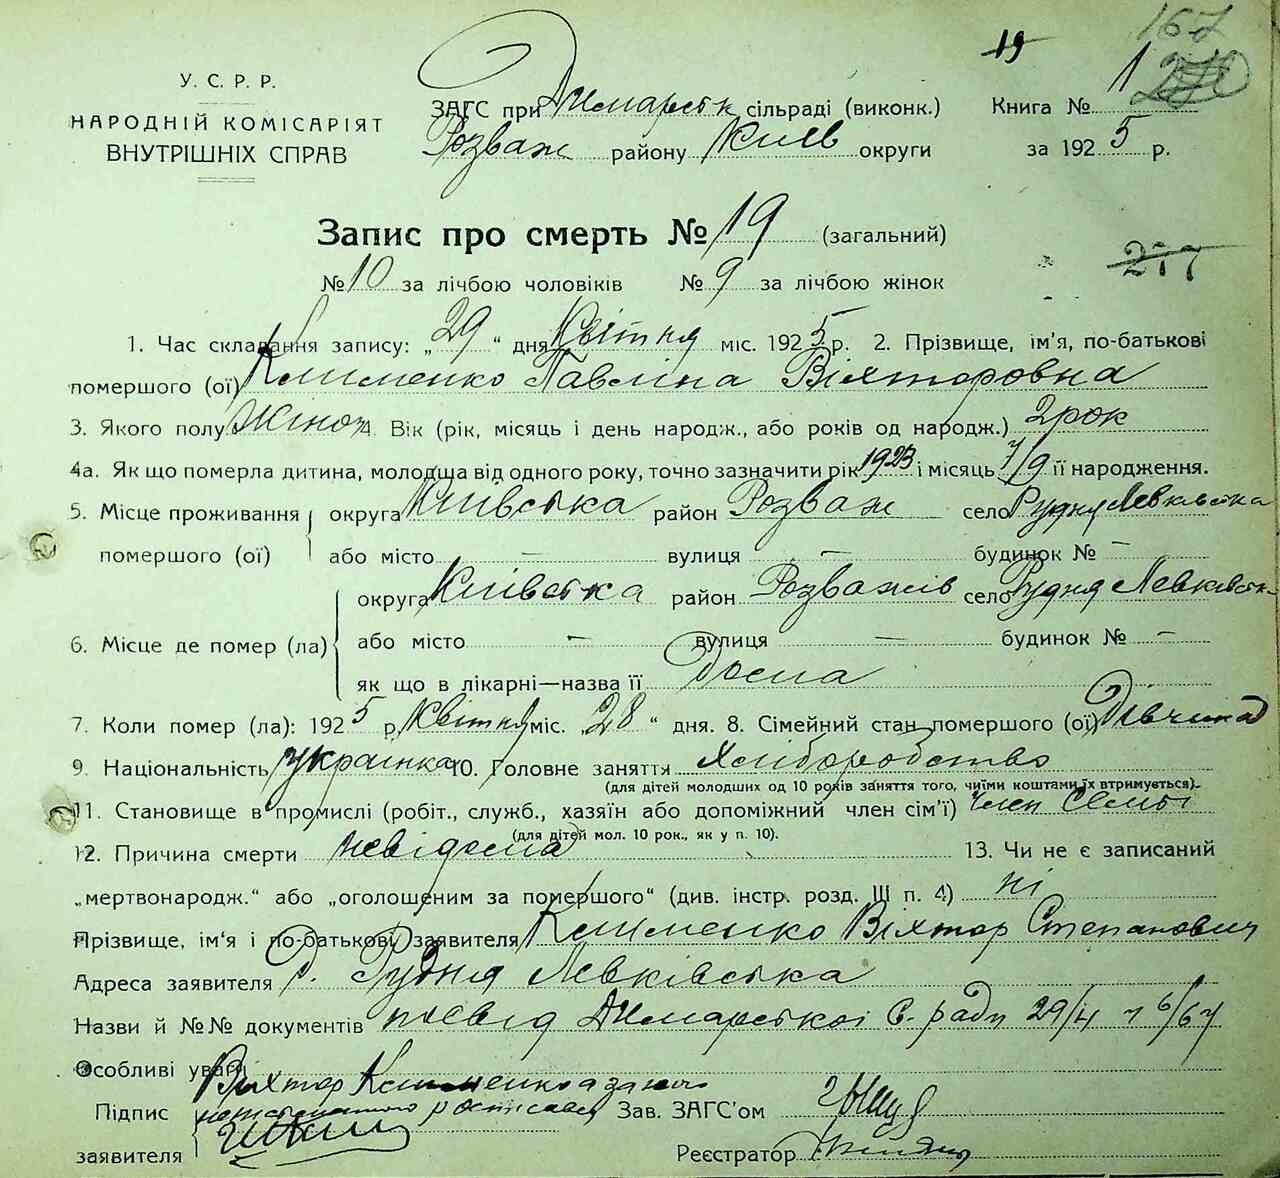 167
19
У. С. Р. Р.
НАРОДНІЙ КОМІСАРІЯТ
ВНУТРІШНІХ СПРАВ
ЗАГС при Димарськ сільраді (виконк.)
Розваж району Київ округи
Книга № 1
за 1925 р.
Запис про смерть № 19 (загальний)
№ 10 за лічбою чоловіків № 9 за лічбою жінок
277
1. Час складання запису: „29“ дня Квітня міс. 1925 р. 2. Прізвище, ім’я, по-батькові
помершого (ої) Клименко Павлина Віхторовна
3. Якого полу Жіноч 4. Вік (рік, місяць і день народж., або років од народж.) 2 рок
4а. Як що померла дитина, молодша від одного року, точно зазначити рік 1923 і місяць 7/9 її народження.
5. Місце проживання помершого (ої) округа Київська район Розваж село Рудня Левківська
або місто — вулиця — будинок № —
6. Місце де помер (ла) округа Київська район Розважів село Рудня Левківськ
або місто — вулиця — будинок № —
як що в лікарні—назва її Дома
7. Коли помер (ла): 1925 р. Квітня міс. „28“ дня. 8. Сімейний стан помершого (ої) Дівчина
9. Національність українка 10. Головне заняття Хліборобство
(для дітей молодших од 10 років заняття того, чиїми коштами їх втримується).
11. Становище в промислі (робіт., служб., хазяїн або допоміжний член сім’ї) член Семьї
(для дітей мол. 10 рок., як у п. 10).
12. Причина смерти невідома 13. Чи не є записаний
„мертвонародж.“ або „оголошеним за помершого“ (див. інстр. розд. III п. 4) ні
Прізвище, ім’я і по-батькові заявителя Клименко Віхтор Степанович
Адреса заявителя с. Рудня Левківська
Назви й №№ документів посвід Димарської С. ради 29/4 1 6/67
Особливі уваги
Підпис заявителя Віхтор Клименко а за його неписьменного росписався
Зав. ЗАГС’ом
Реєстратор